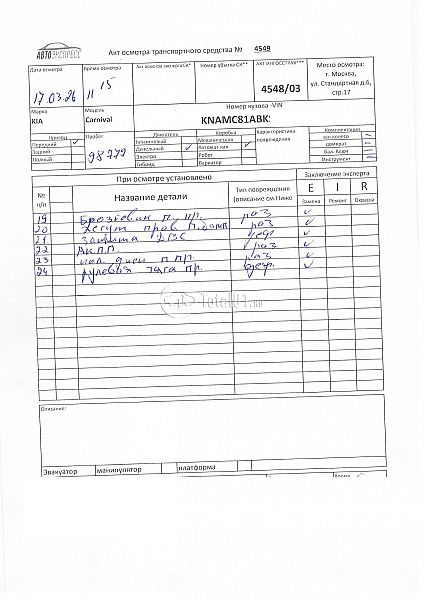 АВТОЭКСПРЕСС
Акт осмотра транспортного средства № 4549
Дата осмотра
Время осмотра
Акт осмотра эксперта СК*
Номер убытка СК**
АКТ ИНГОССТРАХ***
Место осмотра:
г. Москва,
ул. Стандартная д.6,
стр.17
17.03.26
11 15
4548/03
Марка
Модель
Номер кузова -VIN
KIA
Carnival
KNAMC81ABK
Привод
Пробег
Двигатель
Коробка
Характеристики повреждения
Комплектации
Передний
Задний
Полный
98779
Бензиновый
Дизельный
Электро
Гибрид
Механическая
Автомат кая
Робот
Вариатор
зап.колесо
домкрат
бал. Ключ
Инструмент
При осмотре установлено
Заключение эксперта
№ п/п
Название детали
Тип повреждения (описание см.Ниже
E I R
Замена Ремонт Окраска
19 Брызговик п. пр. раз
20 Жгут пров п. раз
21 Защита ДВС деф
22 АКПП раз
23 п пр. раз
24 рулевая тяга пр. деф.
Total01.ru
Описание:
Эвакуатор
манипулятор
платформа